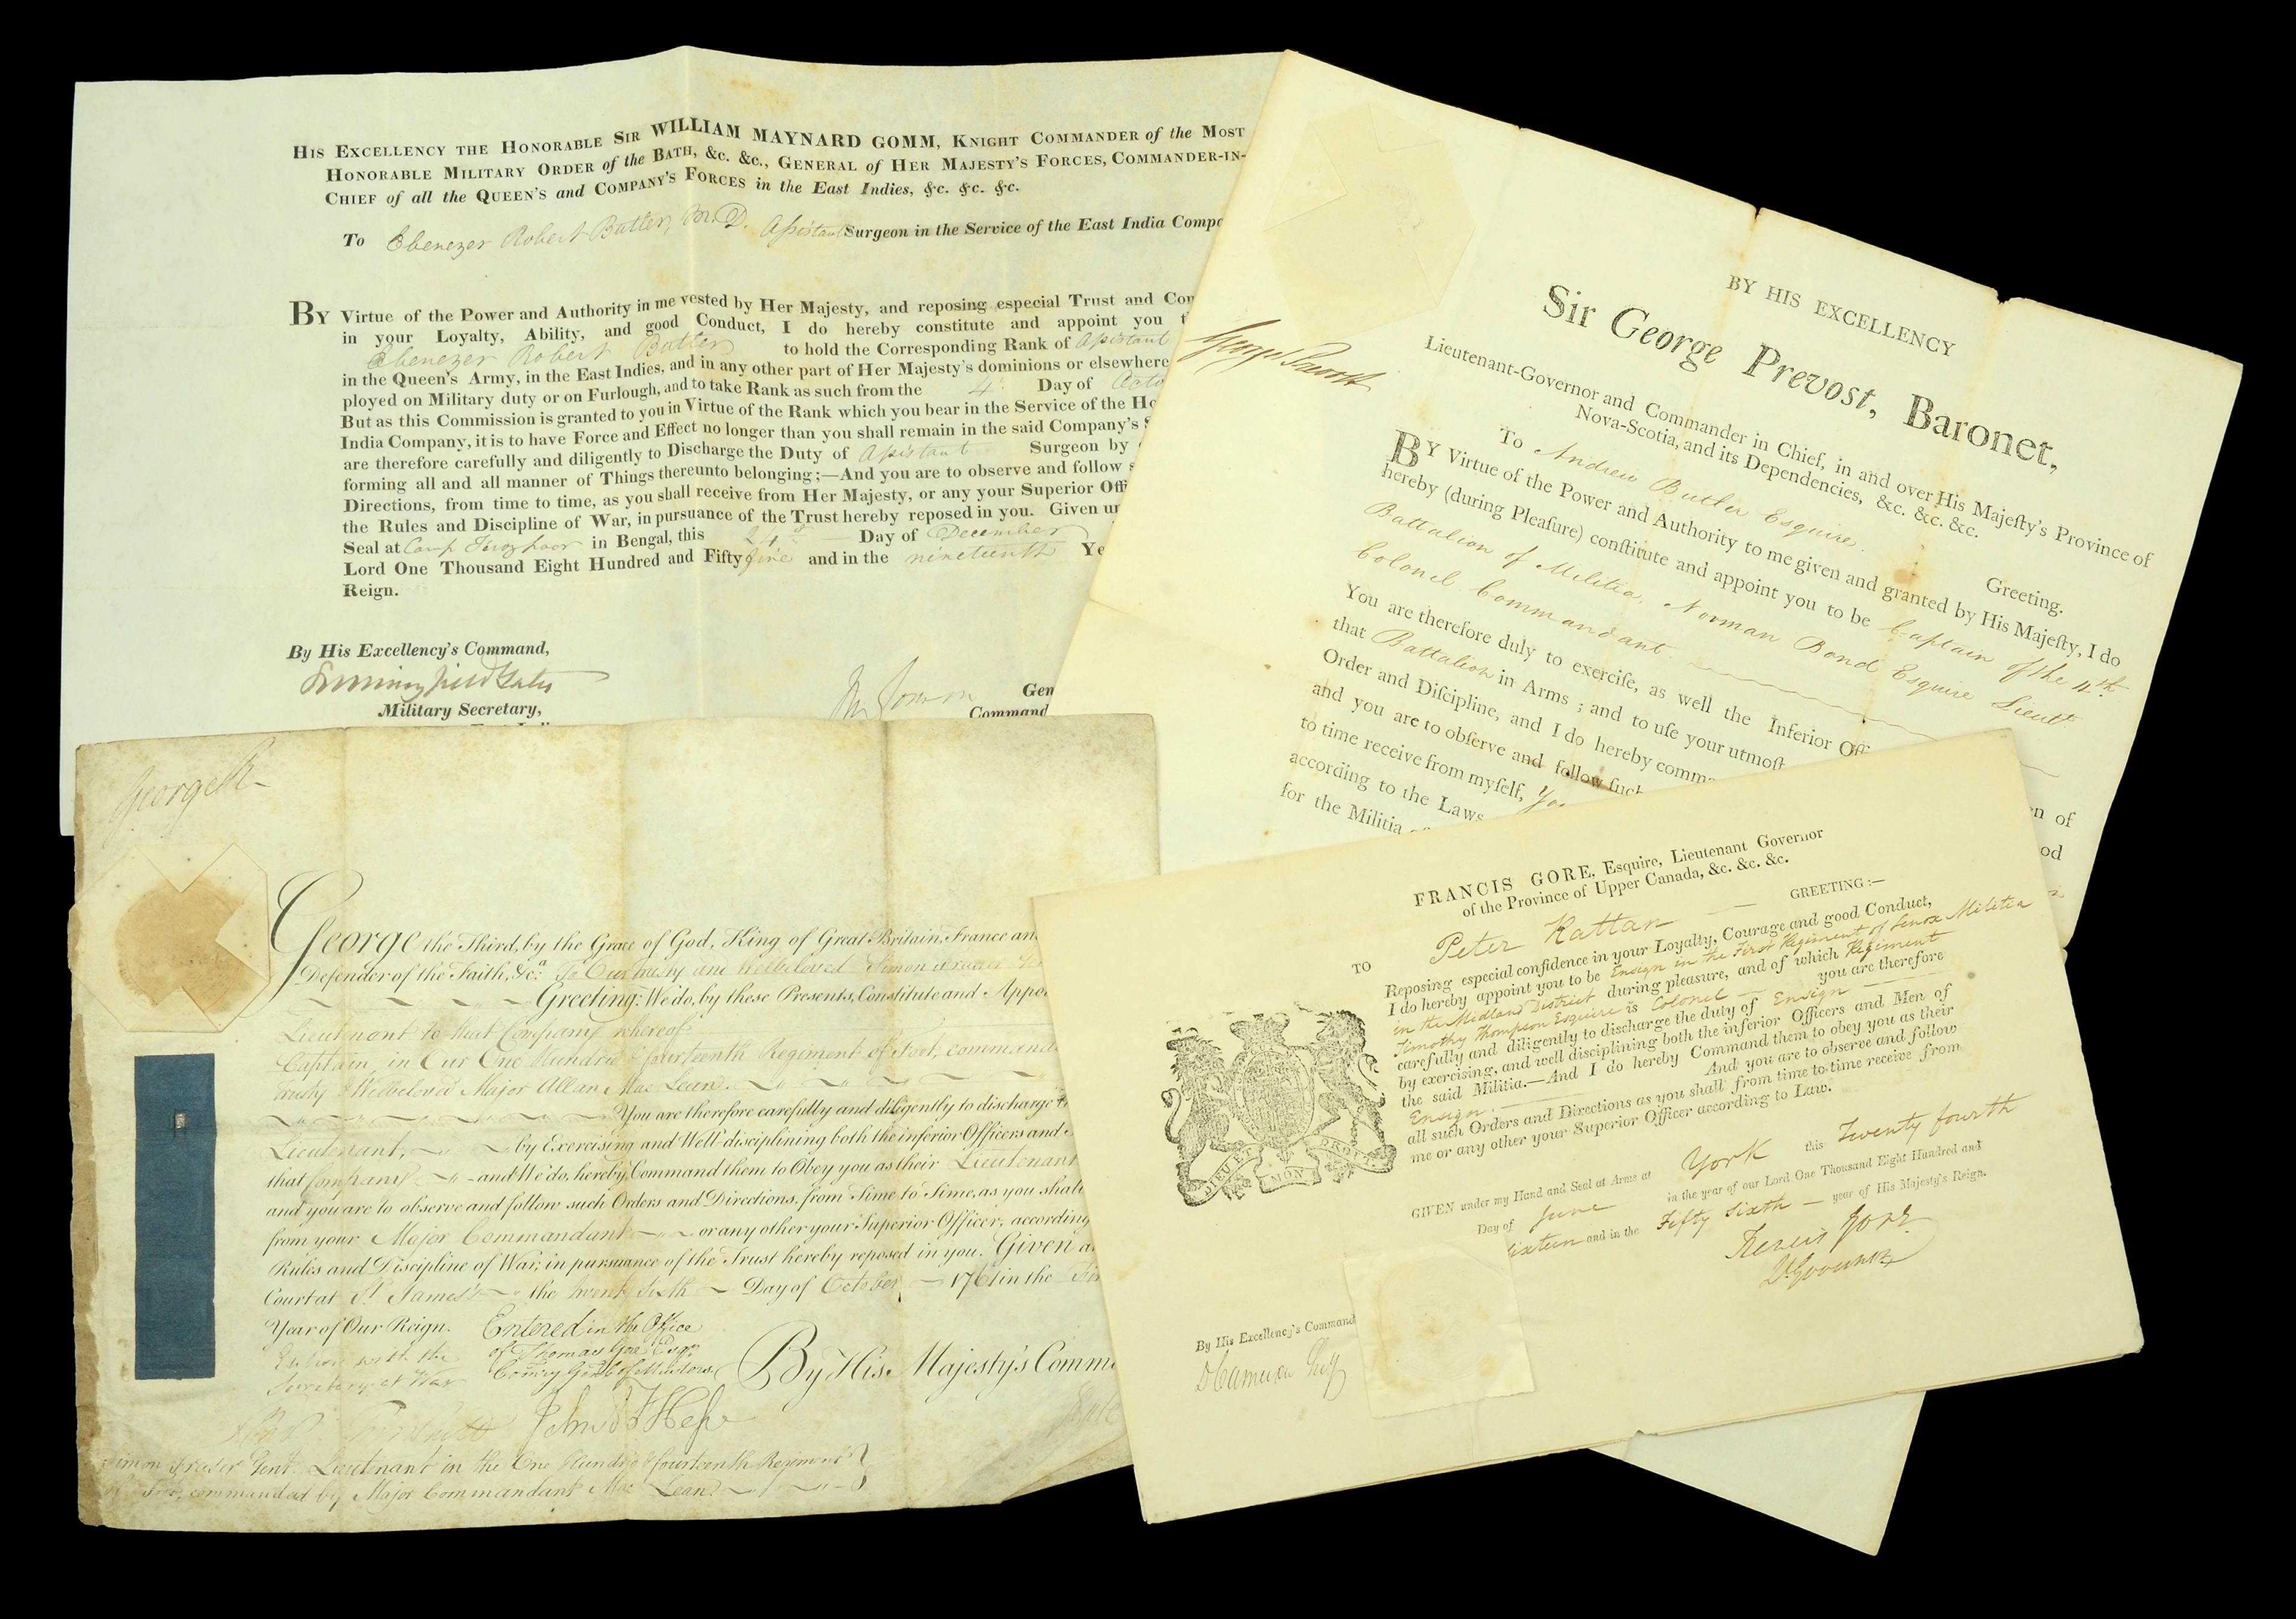 HIS EXCELLENCY THE HONORABLE SIR WILLIAM MAYNARD GOMM, KNIGHT COMMANDER of the MOST
HONORABLE MILITARY ORDER of the BATH, &c. &c., GENERAL of HER MAJESTY'S FORCES, COMMANDER-IN-
CHIEF of all the QUEEN'S and COMPANY'S FORCES in the East Indies, &c. &c. &c.
To Ebenezer Robert Butler, M.D. Assistant Surgeon in the Service of the East India Comp
BY Virtue of the Power and Authority in me vested by Her Majesty, and reposing especial Trust and Con
in your Loyalty, Ability, and good Conduct, I do hereby constitute and appoint you
Ebenezer Robert Butler to hold the Corresponding Rank of Assistant
in the Queen's Army, in the East Indies, and in any other part of Her Majesty's dominions or elsewhere
ployed on Military duty or on Furlough, and to take Rank as such from the 4th Day of Octo
But as this Commission is granted to you in Virtue of the Rank which you bear in the Service of the Ho
India Company, it is to have Force and Effect no longer than you shall remain in the said Company's S
are therefore carefully and diligently to Discharge the Duty of Assistant Surgeon by
forming all and all manner of Things thereunto belonging;—And you are to observe and follow s
Directions, from time to time, as you shall receive from Her Majesty, or any your Superior Offi
the Rules and Discipline of War, in pursuance of the Trust hereby reposed in you. Given un
Seal at Camp Ferozpoor in Bengal, this 24th Day of December
Lord One Thousand Eight Hundred and Fifty five and in the nineteenth Ye
Reign.
By His Excellency's Command,
Military Secretary,
Gen
Command
BY HIS EXCELLENCY
Sir George Prevost, Baronet,
Lieutenant-Governor and Commander in Chief, in and over His Majeſty's Province of
Nova-Scotia, and its Dependencies, &c. &c. &c.
George Prevost
To Andrew Butler Esquire. Greeting.
BY Virtue of the Power and Authority to me given and granted by His Majeſty, I do
hereby (during Pleaſure) conſtitute and appoint you to be Captain of the 4th
Battalion of Militia, Norman Bond Esquire Lieut
Colonel Commandant
You are therefore duly to exerciſe, as well the Inferior Off
that Battalion in Arms; and to uſe your utmoſt
Order and Diſcipline, and I do hereby comm
and you are to obſerve and follow ſuch
to time receive from myſelf, Yo
according to the Laws
for the Militia
en of
od
George R
George the Third, by the Grace of God, King of Great Britain, France an
Defender of the Faith, &c.a To Our trusty and Welbeloved Simon Frazer Gen
Greeting: We do, by these Presents, Constitute and Appo
Lieutenant to that Company whereof
Captain, in Our One Hundred & fourteenth Regiment of Foot, command
Trusty & Welbeloved Major Allan Mac Lean.
You are therefore carefully and diligently to discharge t
Lieutenant, by Exercising and Well disciplining both the inferior Officers and
that Company and We do, hereby, Command them to Obey you as their Lieutenant
and you are to observe and follow such Orders and Directions, from Time to Time, as you shall
from your Major Commandant or any other your Superior Officer, according
Rules and Discipline of War, in pursuance of the Trust hereby reposed in you. Given a
Court at St James's the twenty Sixth Day of October 1761 in the Fir
Year of Our Reign.
Entered with the
Secretary at War
Entered in the Office
of Thomas Gore Esqr.
Comry Genl of Musters.
By His Majesty's Comm
Simon Frazer Gent. Lieutenant in the One Hundred & fourteenth Regiment
of Foot, commanded by Major Commandant Mac Lean.
FRANCIS GORE, Esquire, Lieutenant Governor
of the Province of Upper Canada, &c. &c. &c.
TO Peter Rattan GREETING:—
Reposing especial confidence in your Loyalty, Courage and good Conduct,
I do hereby appoint you to be Ensign in the First Regiment of Lenox Militia
in the Midland District during pleasure, and of which Regiment
Timothy Thompson Esquire is Colonel you are therefore
carefully and diligently to discharge the duty of Ensign
by exercising, and well disciplining both the inferior Officers and Men of
the said Militia.—And I do hereby Command them to obey you as their
Ensign. And you are to observe and follow
all such Orders and Directions as you shall from time to time receive from
me or any other your Superior Officer according to Law.
DIEU ET MON DROIT
GIVEN under my Hand and Seal at Arms at York this Twenty fourth
Day of June in the year of our Lord One Thousand Eight Hundred and
Sixteen and in the Fifty Sixth year of His Majesty's Reign.
Francis Gore
Lt Governor
By His Excellency's Command